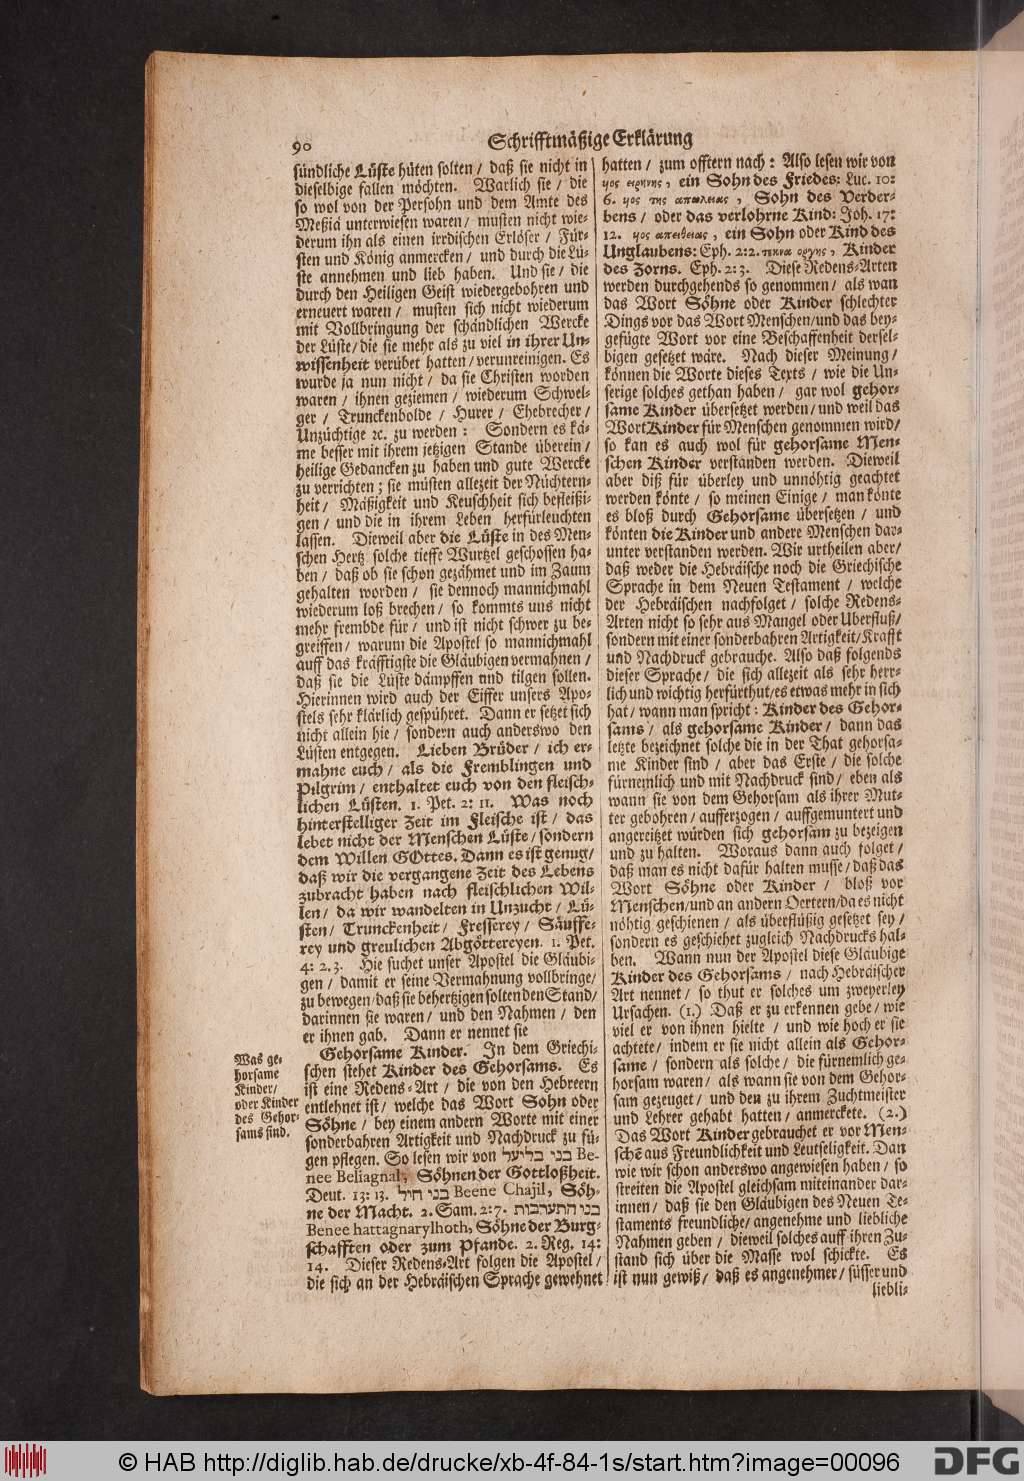 90
Schrifftmäßige Erklärung
sündliche Lüste hüten solten / daß sie nicht in
dieselbige fallen möchten. Warlich sie / die
so wol von der Persohn und dem Amte des
Meßiä unterwiesen waren / musten nicht wie-
derum ihn als einen irrdischen Erlöser / Für-
sten und König anmercken / und durch die Lü-
ste annehmen und lieb haben. Und sie / die
durch den Heiligen Geist wiedergebohren und
erneuert waren / musten sich nicht wiederum
mit Vollbringung der schändlichen Wercke
der Lüste / die sie mehr als zu viel in ihrer Un-
wissenheit verübet hatten / verunreinigen. Es
wurde ja nun nicht / da sie Christen worden
waren / ihnen geziemen / wiederum Schwel-
ger / Trunckenbolde / Hurer / Ehebrecher /
Unzüchtige ꝛc. zu werden: Sondern es kä-
me besser mit ihrem jetzigen Stande überein /
heilige Gedancken zu haben und gute Wercke
zu verrichten; sie müsten allezeit der Nüchtern-
heit / Mäßigkeit und Keuschheit sich befleißi-
gen / und die in ihrem Leben herfürleuchten
lassen. Dieweil aber die Lüste in des Men-
schen Hertz solche tieffe Wurtzel geschossen ha-
ben / daß ob sie schon gezähmet und im Zaum
gehalten worden / sie dennoch mannichmahl
wiederum loß brechen / so kommts uns nicht
mehr frembde für / und ist nicht schwer zu be-
greiffen / warum die Apostel so mannichmahl
auff das kräfftigste die Gläubigen vermahnen /
daß sie die Lüste dämpffen und tilgen sollen.
Hierinnen wird auch der Eiffer unsers Apo-
stels sehr klärlich gespühret. Dann er setzet sich
nicht allein hie / sondern auch anderswo den
Lüsten entgegen. Lieben Brüder / ich er-
mahne euch / als die Fremblingen und
Pilgrim / enthaltet euch von den fleisch-
lichen Lüsten. 1. Pet. 2: 11. Was noch
hinterstelliger Zeit im Fleische ist / das
lebet nicht der Menschen Lüste / sondern
dem Willen GOttes. Dann es ist genug /
daß wir die vergangene Zeit des Lebens
zubracht haben nach fleischlichen Wil-
len / da wir wandelten in Unzucht / Lü-
sten / Trunckenheit / Fresserey / Säuffe-
rey und greulichen Abgöttereyen. 1. Pet.
4: 2. 3. Hie suchet unser Apostel die Gläubi-
gen / damit er seine Vermahnung vollbringe /
zu bewegen / daß sie behertzigen solten den Stand /
darinnen sie waren / und den Nahmen / den
er ihnen gab. Dann er nennet sie
Gehorsame Kinder. In dem Griechi-
schen stehet Kinder des Gehorsams. Es
ist eine Redens-Art / die von den Hebreern
entlehnet ist / welche das Wort Sohn oder
Söhne / bey einem andern Worte mit einer
sonderbahren Artigkeit und Nachdruck zu fü-
gen pflegen. So lesen wir von בני בליעל Be-
nee Beliagnal, Söhnen der Gottloßheit.
Deut. 13: 13. בני חיל Beene Chajil, Söh-
ne der Macht. 2. Sam. 2: 7. בני התערבות
Benee hattagnarylhoth, Söhne der Burg-
schafften oder zum Pfande. 2. Reg. 14:
14. Dieser Redens-Art folgen die Apostel /
die sich an der Hebräischen Sprache gewehnet
Was ge-
horsame
Kinder /
oder Kinder
des Gehor-
sams sind.
hatten / zum offtern nach: Also lesen wir von
υιος ειρηνης, ein Sohn des Friedes: Luc. 10:
6. υιος της απωλειας, Sohn des Verder-
bens / oder das verlohrne Kind: Joh. 17:
12. υιος απειθειας, ein Sohn oder Kind des
Unglaubens: Eph. 2: 2. τεκνα οργης, Kinder
des Zorns. Eph. 2: 3. Diese Redens-Arten
werden durchgehends so genommen / als wan
das Wort Söhne oder Kinder schlechter
Dings vor das Wort Menschen / und das bey-
gefügte Wort vor eine Beschaffenheit dersel-
bigen gesetzet wäre. Nach dieser Meinung /
können die Worte dieses Texts / wie die Un-
serige solches gethan haben / gar wol gehor-
same Kinder übersetzet werden / und weil das
Wort Kinder für Menschen genommen wird /
so kan es auch wol für gehorsame Men-
schen Kinder verstanden werden. Dieweil
aber diß für überley und unnöhtig geachtet
werden könte / so meinen Einige / man könte
es bloß durch Gehorsame übersetzen / und
könten die Kinder und andere Menschen dar-
unter verstanden werden. Wir urtheilen aber /
daß weder die Hebräische noch die Griechische
Sprache in dem Neuen Testament / welche
der Hebräischen nachfolget / solche Redens-
Arten nicht so sehr aus Mangel oder Uberfluß /
sondern mit einer sonderbahren Artigkeit / Krafft
und Nachdruck gebrauche. Also daß folgends
dieser Sprache / die sich allezeit als sehr herr-
lich und wichtig herfürthut / es etwas mehr in sich
hat / wann man spricht: Kinder des Gehor-
sams / als gehorsame Kinder / dann das
letzte bezeichnet solche die in der That gehorsa-
me Kinder sind / aber das Erste / die solche
fürnemlich und mit Nachdruck sind / eben als
wann sie von dem Gehorsam als ihrer Mut-
ter gebohren / aufferzogen / auffgemuntert und
angereitzet würden sich gehorsam zu bezeigen
und zu halten. Woraus dann auch folget /
daß man es nicht dafür halten musse / daß das
Wort Söhne oder Kinder / bloß vor
Menschen / und an andern Oertern / da es nicht
nöhtig geschienen / als überflüßig gesetzet sey /
sondern es geschiehet zugleich Nachdrucks hal-
ben. Wann nun der Apostel diese Gläubige
Kinder des Gehorsams / nach Hebräischer
Art nennet / so thut er solches um zweyerley
Ursachen. (1.) Daß er zu erkennen gebe / wie
viel er von ihnen hielte / und wie hoch er sie
achtete / indem er sie nicht allein als Gehor-
same / sondern als solche / die fürnemlich ge-
horsam waren / als wann sie von dem Gehor-
sam gezeuget / und den zu ihrem Zuchtmeister
und Lehrer gehabt hatten / anmerckete. (2.)
Das Wort Kinder gebrauchet er vor Men-
schẽ aus Freundlichkeit und Leutseligkeit. Dan
wie wir schon anderswo angewiesen haben / so
streiten die Apostel gleichsam miteinander dar-
innen / daß sie den Gläubigen des Neuen Te-
staments freundliche / angenehme und liebliche
Nahmen geben / dieweil solches auff ihren Zu-
stand sich über die Masse wol schickte. Es
ist nun gewiß / daß es angenehmer / süsser und
liebli-
© HAB http://diglib.hab.de/drucke/xb-4f-84-1s/start.htm?image=00096
DFG